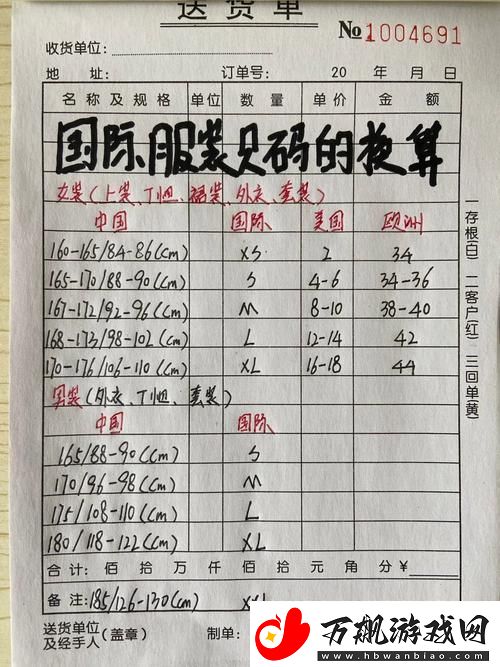 送货单
№1004691
收货单位:
地 址: 订单号: 20 年 月 日
名称及规格 单位 数量 单价 金额
国际服装尺码的换算
女装(上装、T恤、裙装、外衣、套装)
中国 国际 美国 欧洲
160-165/84-86(cm) XS 2 34
165-170/88-90(cm) S 4-6 34-36
167-172/92-96(cm) M 8-10 38-40
168-173/98-102(cm) L 12-14 42
170-176/106-110(cm) XL 16-18 44
男装(外衣、T恤、套装)
中国 国际
165/88-90(cm) S
170/96-98(cm) M
175/108-110(cm) L
180/118-122(cm) XL
合计: 佰 拾 万 仟 佰 拾 元 角 分 ¥
备注: 185/126-130(cm) XXL
送货单位
及经手人(盖章) 制单:
一存根(白) 二客户(红) 三回单(黄)
万飙游戏网
www.hbwanbiao.com